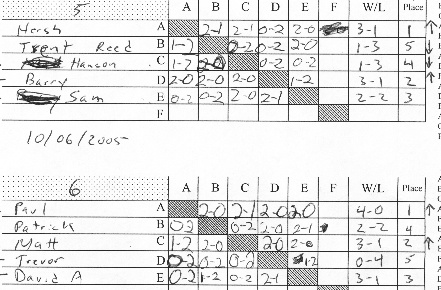 5 A B C D E F W/L Place
Hersh A 2-1 2-1 0-2 2-0 3-1 1
Trent Reed B 1-2 2-0 2-0 1-3 5
Hanson C 1-2 2-0 0-2 0-2 1-3 4
Barry D 2-0 2-0 2-0 1-2 3-1 2
Sam E 0-2 0-2 2-0 2-1 2-2 3
F
10/06/2005
6 A B C D E F W/L Place
Paul A 2-0 2-1 2-0 2-0 4-0 1
Patrick B 0-2 0-2 2-0 2-1 2-2 4
Matt C 1-2 2-0 2-0 2-0 3-1 2
Trevor D 0-2 0-2 0-2 1-2 0-4 5
David A E 0-2 1-2 0-2 2-1 3-1 3